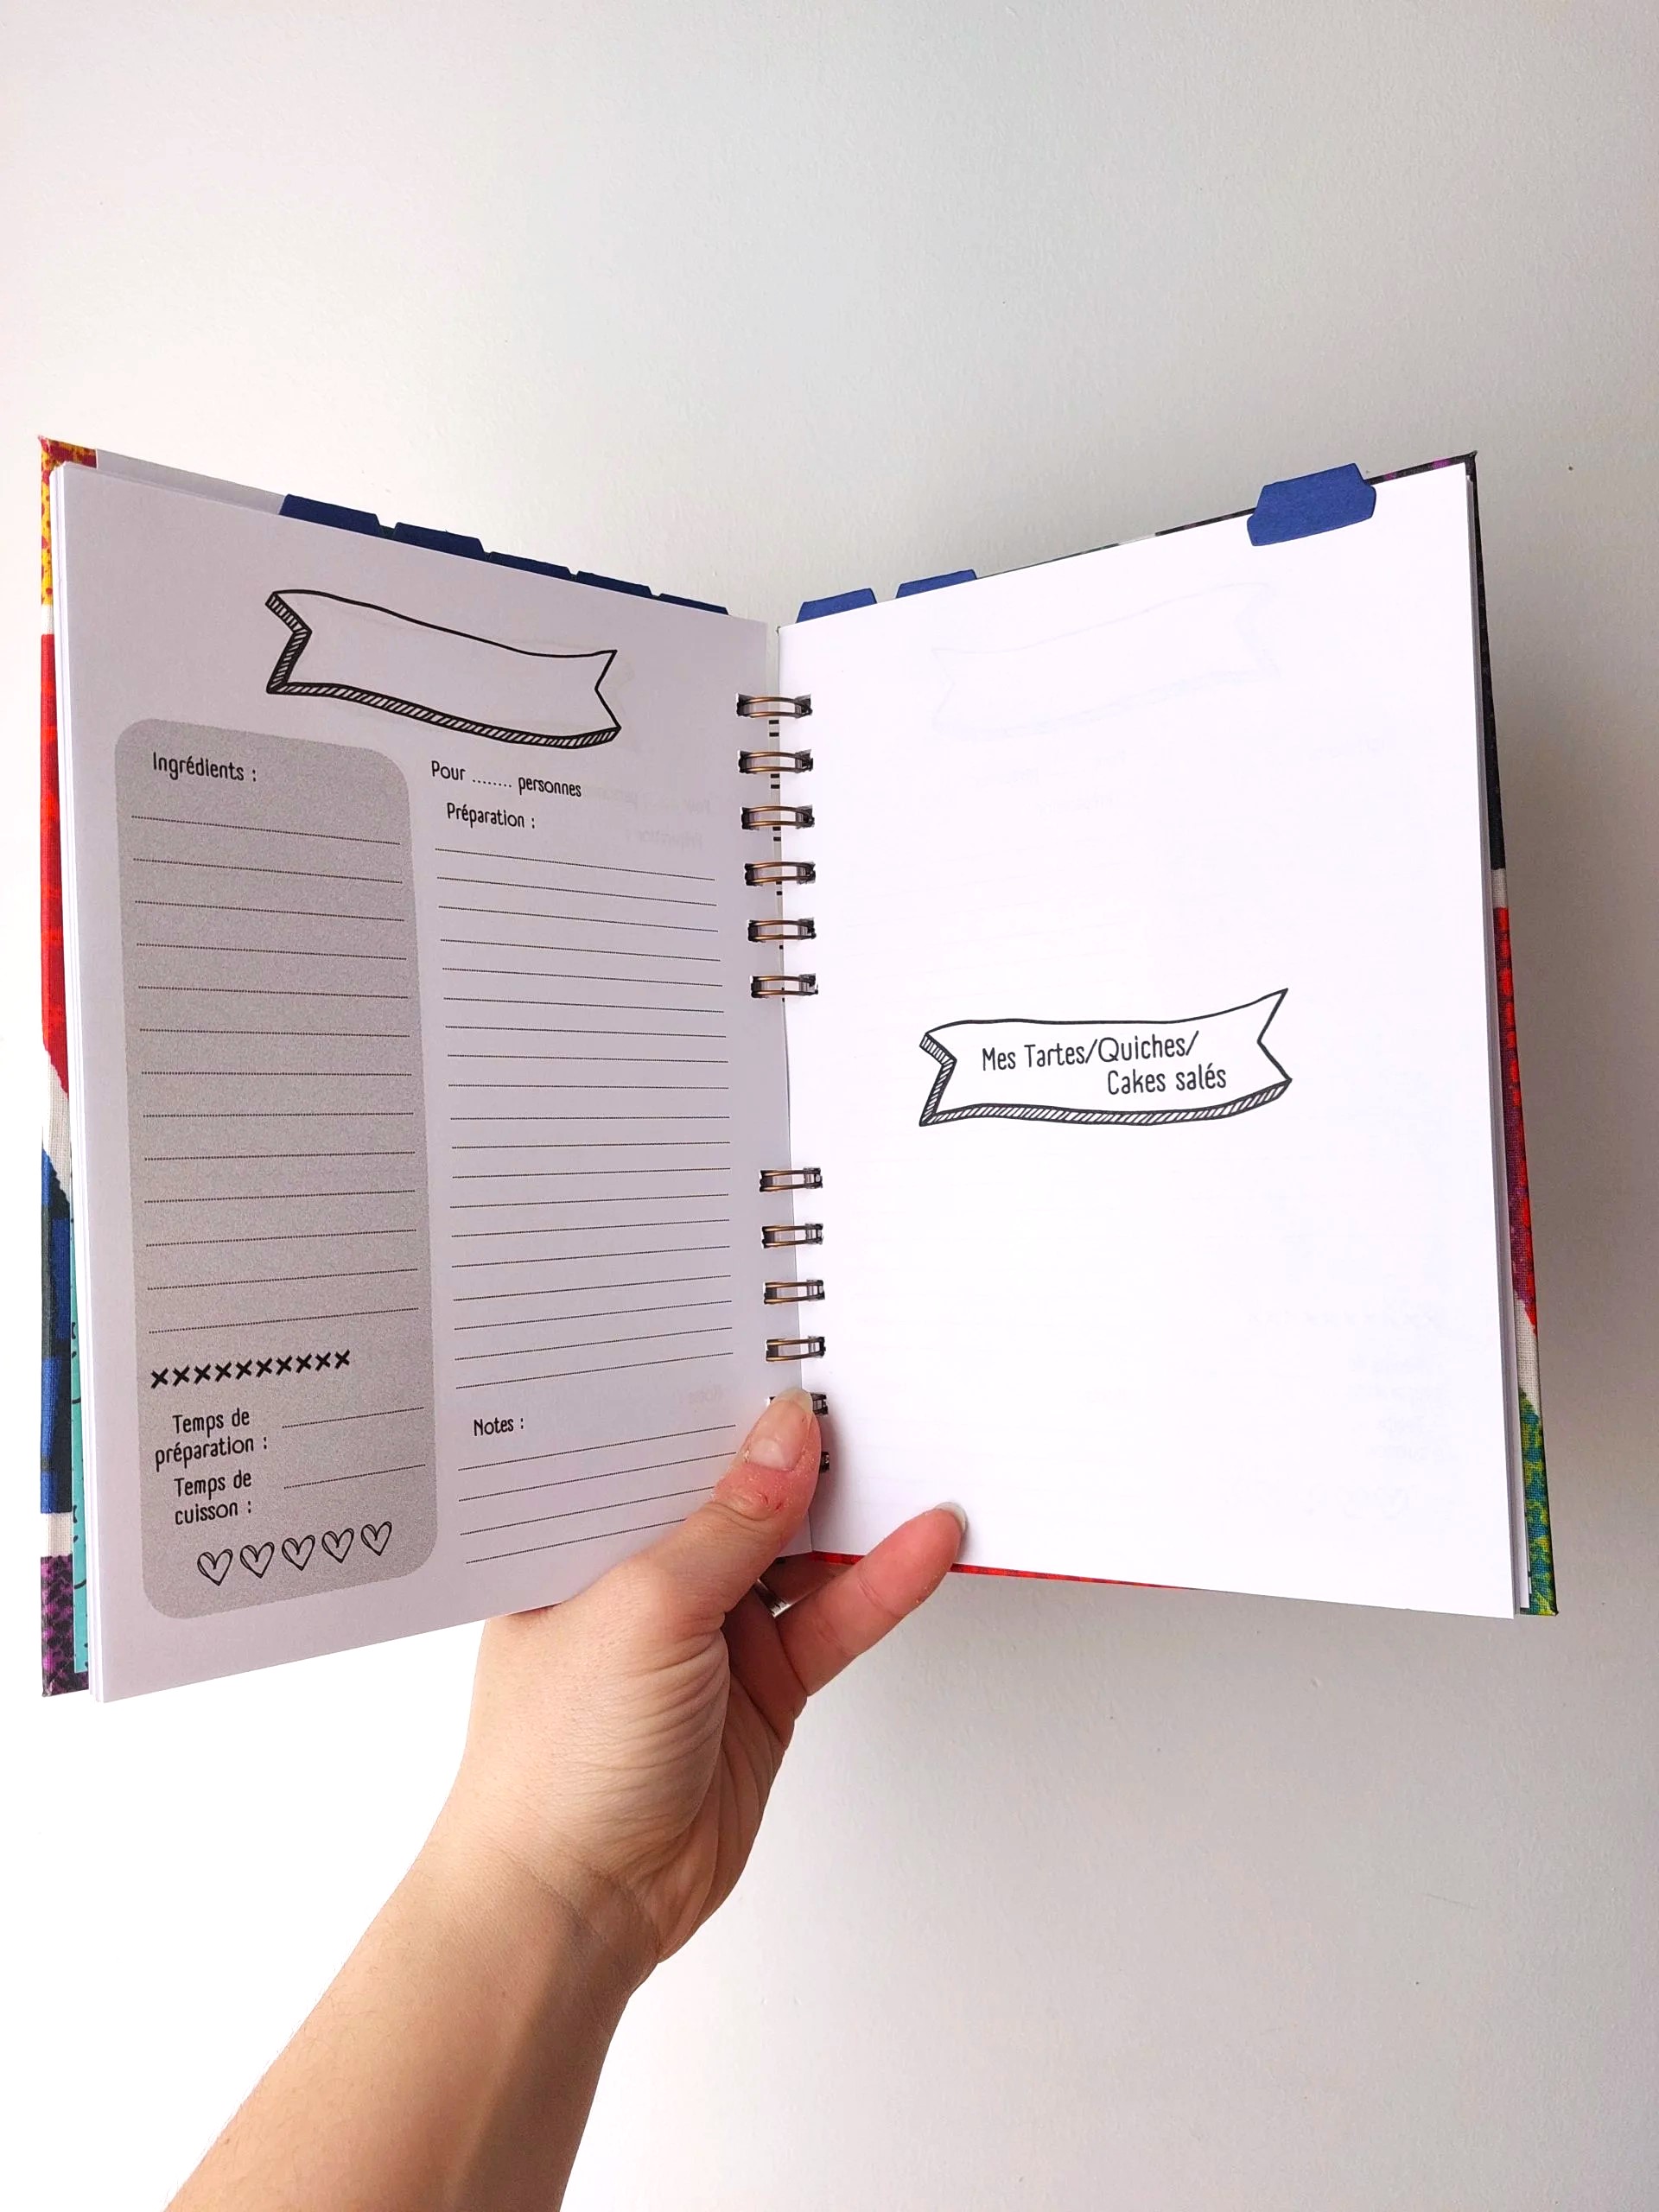 Ingrédients :
Pour ........ personnes
Préparation :
xxxxxxxxxx
Temps de
préparation :
Temps de
cuisson :
Notes :
Mes Tartes/Quiches/
Cakes salés